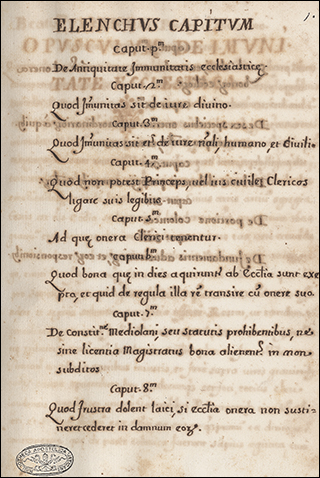 1.
ELENCHVS CAPITVM
Caput pm
De Antiquitate Immunitatis ecclesiasticę
Caput 2m
Quod Immunitas sit de iure diuino
Caput 3m
Quod Immunitas sit et de iure nāli, humano, et Ciuili
Caput 4m
Quod non potest Princeps uel ius ciuile Clericos
ligare suis legibus
Caput 5m
Ad quę onera Clerici tenentur
Caput 6m
Quod bona quę in dies aquirunt ab Ecclīa sunt exe
pta, et quid de regula illa rē transire cū onere suo
Caput 7m
De Constitne Mediolani, seu statutis prohibentibus, ne
sine licentia Magistratus bona alienent in non
subditos
Caput 8m
Quod frustra dolent laici, si ecclīa onera non susti
neret cederet in damnum eoꝝ